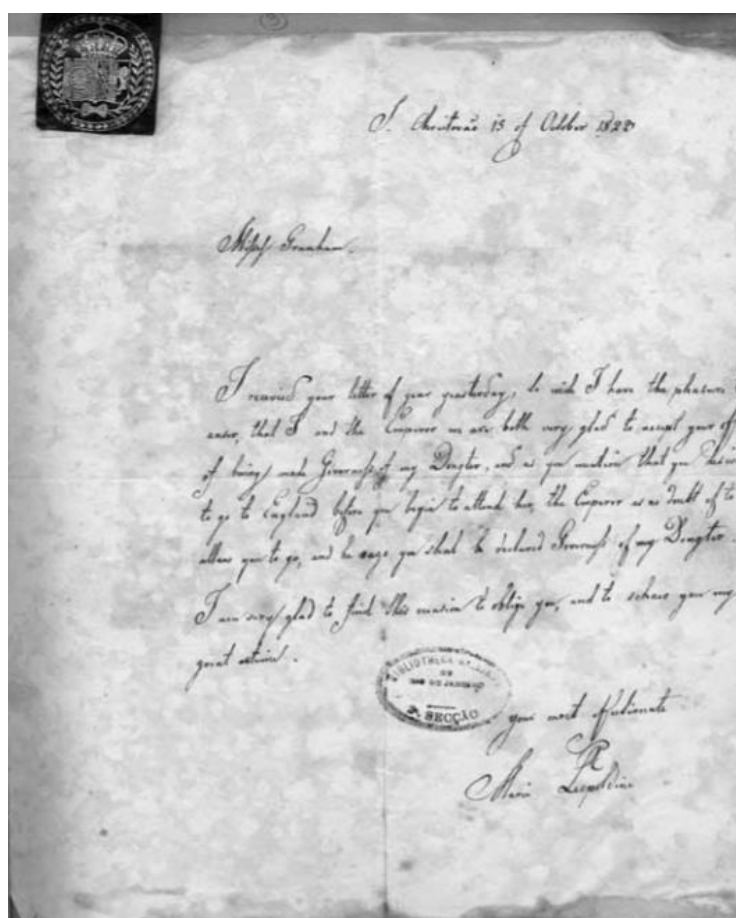 S. Christovaõ 13 of October 1823
Missis Graaham.
I received your letter of your yesterday, to wich I have the pleasure
answer, that I and the Emperor we are both very glad to accept your
of being made Governess of my Daugter, and as you mention that you
to go to England before you begin to attend her, the Emperor as no doubt of to
allow you to go, and he says you shal be declared Governess of my Daugter.
I am very glad to find this occasion to oblige you, and to you my
great
BIBLIOTHECA NACIONAL
DO
RIO DE JANEIRO
SECÇÃO
your most affectionate
Maria Leopoldina